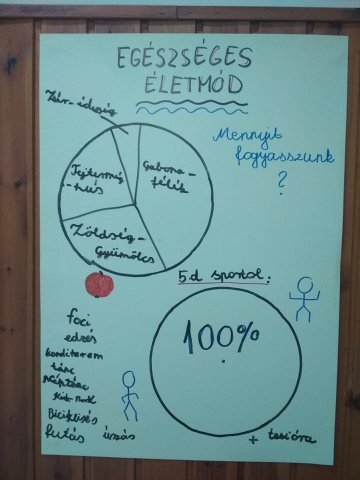 EGÉSZSÉGES
ÉLETMÓD
Zsír-édesség
Mennyit
fogyasszunk
?
Tejtermék
-hús
Gabona-
félék
Zöldség-
Gyümölcs
5.d sportol:
100%
foci
edzés
konditerem
tánc
Néptánc
Kick-Box
Biciklizés
futás úszás
+ tesióra